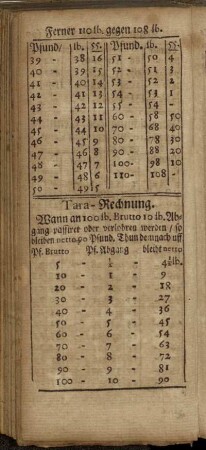 Ferner 110 lb. gegen 108 lb.
Pfund/ lb. ss. Pfund. lb. ss.
39 - 38 16 51 - 50 4
40 - 39 15 52 - 51 3
41 - 40 14 53 - 52 2
42 - 41 13 54 - 53 1
43 - 42 12 55 - 54 -
44 - 43 11 60 - 58 50
45 - 44 10 70 - 68 40
46 - 45 9 80 - 78 30
47 - 46 8 90 - 88 20
48 - 47 7 100 - 98 10
49 - 48 6 110 - 108 -
50 - 49 5
Tara-Rechnung.
Wann an 100 lb. Brutto 10 lb. Ab-
gang passiret oder verlohren werden / so
bleiben netto 90 Pfund. Thun demnach uff
Pf. Brutto Pf. Abgang bleibt netto
5 - ½ - 4½ lb.
10 - 1 - 9
20 - 2 - 18
30 - 3 - 27
40 - 4 - 36
50 - 5 - 45
60 - 6 - 54
70 - 7 - 63
80 - 8 - 72
90 - 9 - 81
100 - 10 - 90